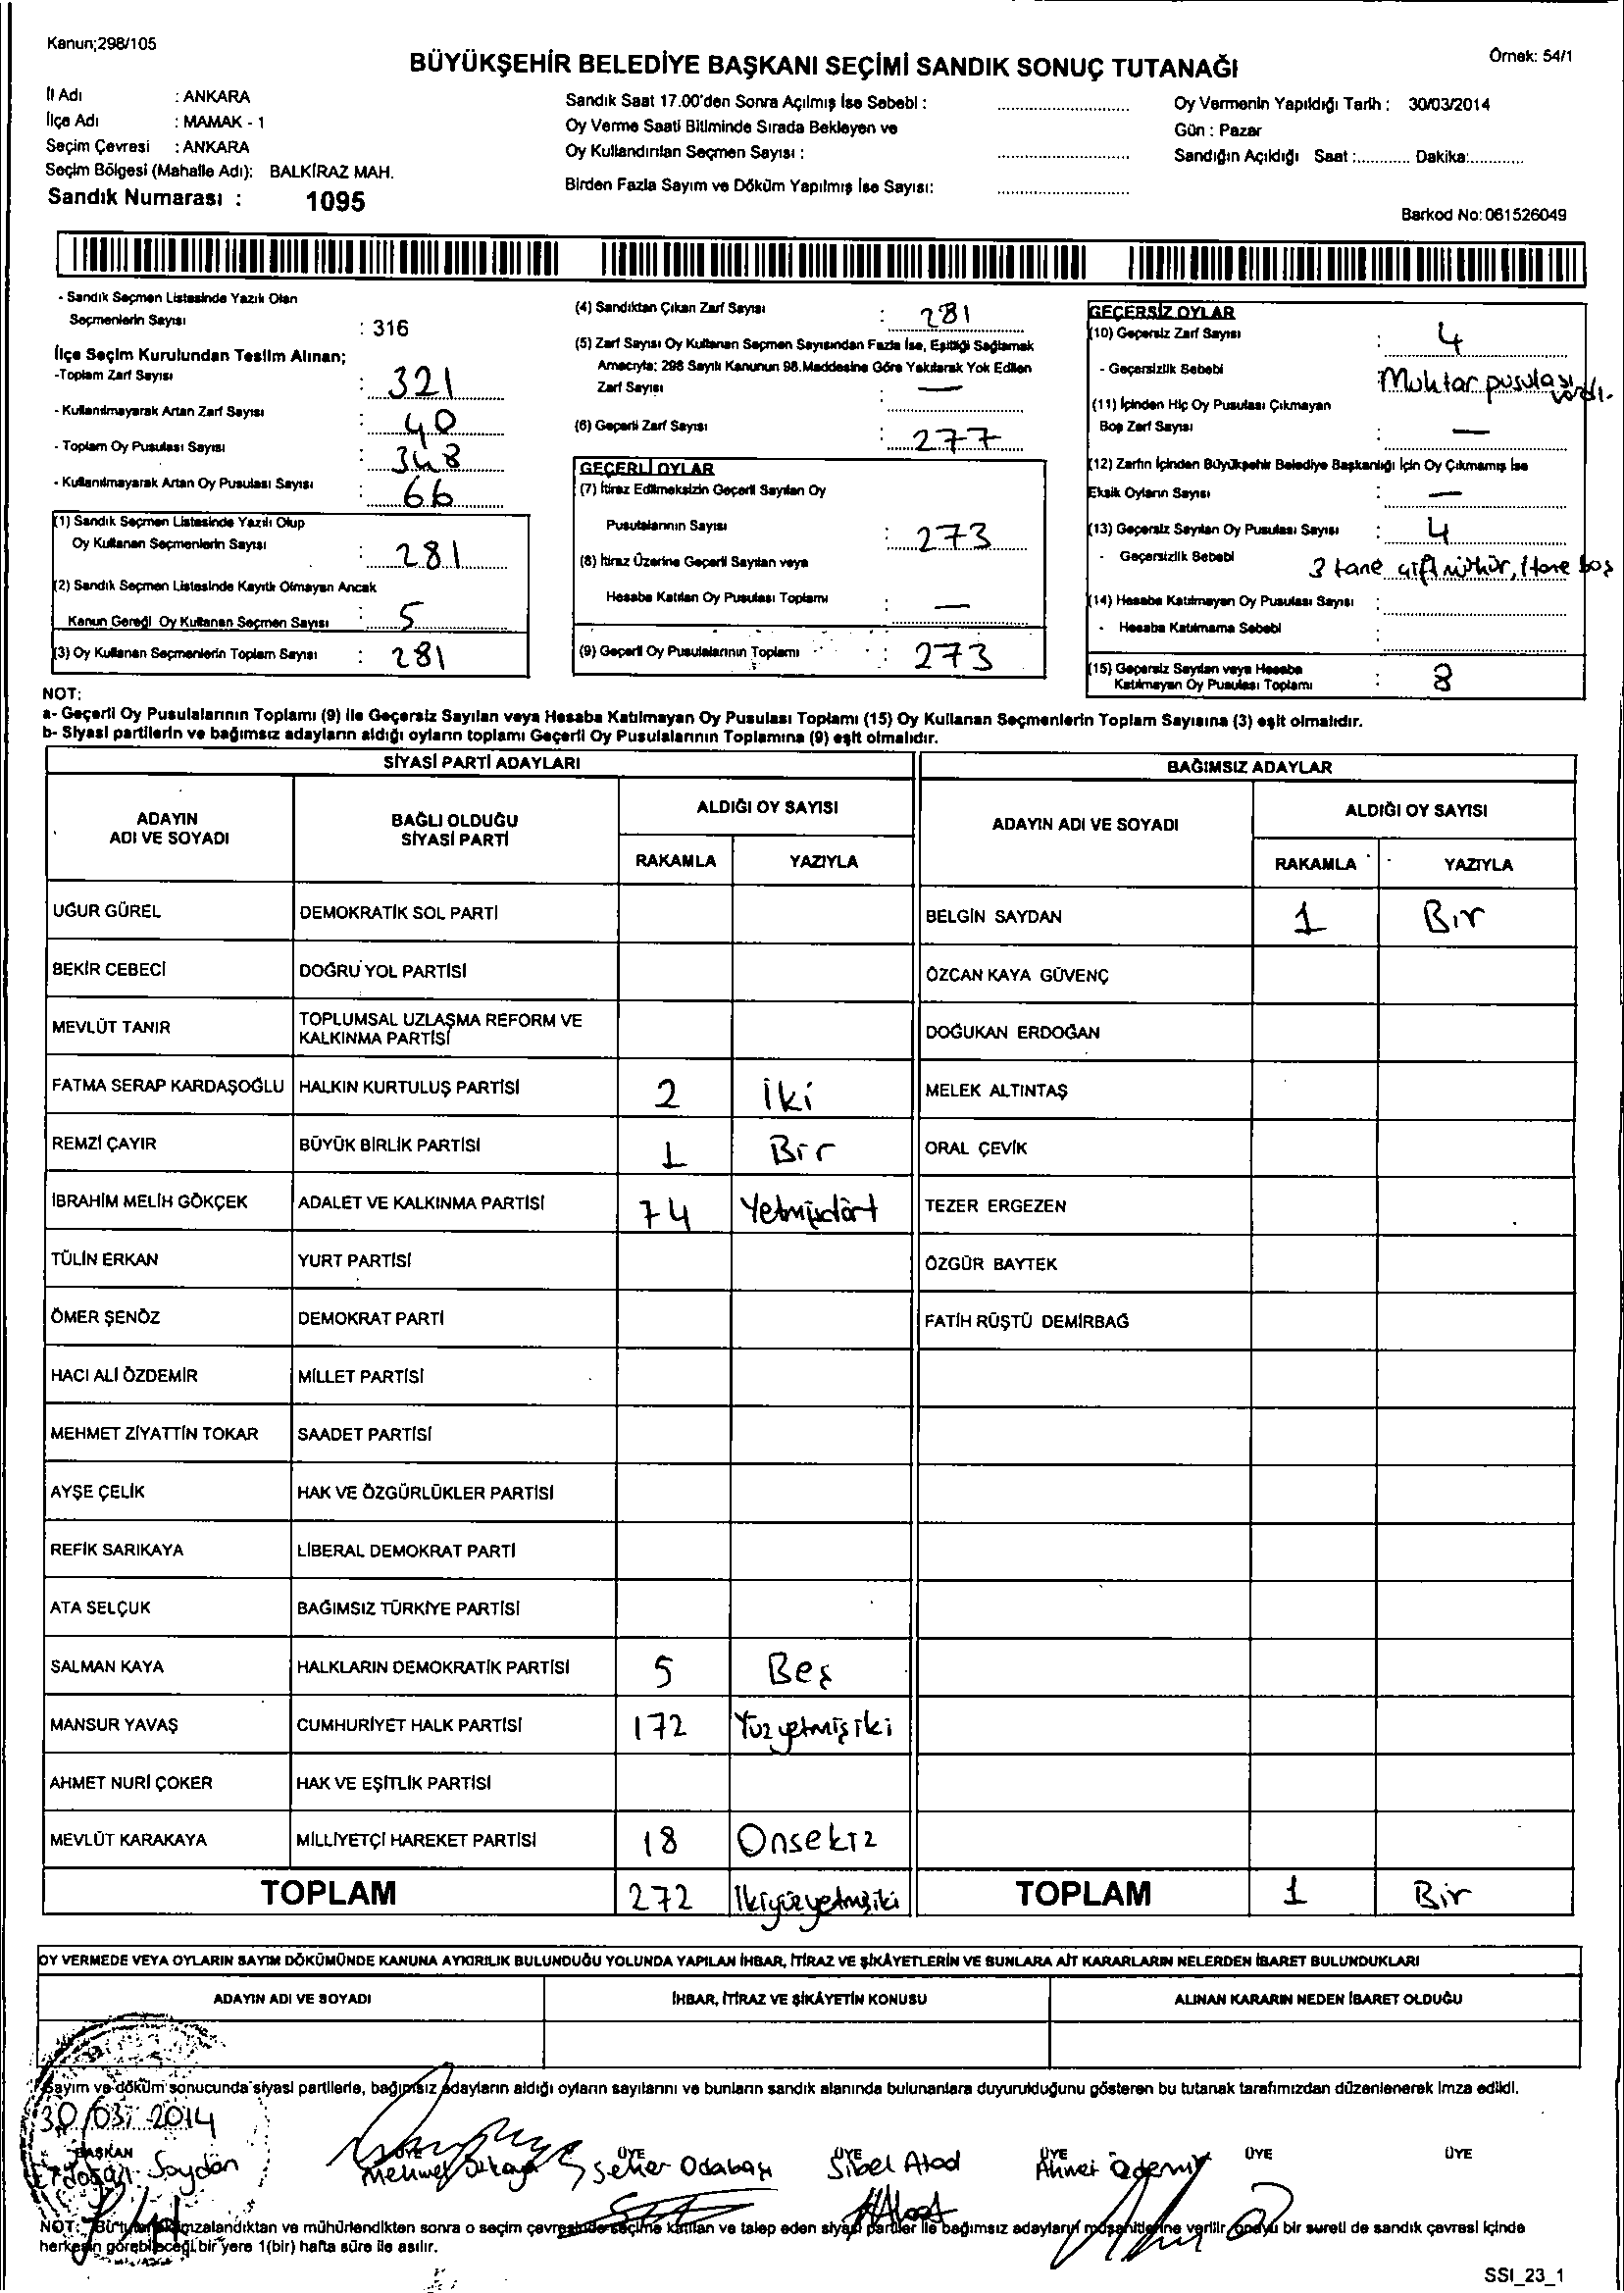 Kanun;298/105
BÜYÜKŞEHİR BELEDİYE BAŞKANI SEÇİMİ SANDIK SONUÇ TUTANAĞI
Örnek: 54/1
İl Adı : ANKARA
İlçe Adı : MAMAK - 1
Seçim Çevresi : ANKARA
Seçim Bölgesi (Mahalle Adı): BALKİRAZ MAH.
Sandık Numarası : 1095
Sandık Saat 17.00'den Sonra Açılmış İse Sebebi :
Oy Verme Saati Bitiminde Sırada Bekleyen ve
Oy Kullandırılan Seçmen Sayısı :
Birden Fazla Sayım ve Döküm Yapılmış İse Sayısı:
Oy Vermenin Yapıldığı Tarih : 30/03/2014
Gün : Pazar
Sandığın Açıldığı Saat :............ Dakika:............
Barkod No: 061526049
- Sandık Seçmen Listesinde Yazılı Olan
Seçmenlerin Sayısı : 316
İlçe Seçim Kurulundan Teslim Alınan;
-Toplam Zarf Sayısı : 321
- Kullanılmayarak Artan Zarf Sayısı : 40
- Toplam Oy Pusulası Sayısı : 348
- Kullanılmayarak Artan Oy Pusulası Sayısı : 66
(1) Sandık Seçmen Listesinde Yazılı Olup
Oy Kullanan Seçmenlerin Sayısı : 281
(2) Sandık Seçmen Listesinde Kayıtlı Olmayan Ancak
Kanun Gereği Oy Kullanan Seçmen Sayısı : 5
(3) Oy Kullanan Seçmenlerin Toplam Sayısı : 281
(4) Sandıktan Çıkan Zarf Sayısı : 281
(5) Zarf Sayısı Oy Kullanan Seçmen Sayısından Fazla İse, Eşitliği Sağlamak
Amacıyla; 298 Sayılı Kanunun 98.Maddesine Göre Yakılarak Yok Edilen
Zarf Sayısı : —
(6) Geçerli Zarf Sayısı : 277
GEÇERLİ OYLAR
(7) İtiraz Edilmeksizin Geçerli Sayılan Oy
Pusulalarının Sayısı : 273
(8) İtiraz Üzerine Geçerli Sayılan veya
Hesaba Katılan Oy Pusulası Toplamı : —
(9) Geçerli Oy Pusulalarının Toplamı : 273
GEÇERSİZ OYLAR
(10) Geçersiz Zarf Sayısı : 4
- Geçersizlik Sebebi : Muhtar pusulası vardı.
(11) İçinden Hiç Oy Pusulası Çıkmayan
Boş Zarf Sayısı : —
(12) Zarfın İçinden Büyükşehir Belediye Başkanlığı İçin Oy Çıkmamış İse
Eksik Oyların Sayısı : —
(13) Geçersiz Sayılan Oy Pusulası Sayısı : 4
- Geçersizlik Sebebi 3 tane çift mühür, 1 tane boş
(14) Hesaba Katılmayan Oy Pusulası Sayısı :
- Hesaba Katılmama Sebebi :
(15) Geçersiz Sayılan veya Hesaba
Katılmayan Oy Pusulası Toplamı : 8
NOT:
a- Geçerli Oy Pusulalarının Toplamı (9) ile Geçersiz Sayılan veya Hesaba Katılmayan Oy Pusulası Toplamı (15) Oy Kullanan Seçmenlerin Toplam Sayısına (3) eşit olmalıdır.
b- Siyasi partilerin ve bağımsız adayların aldığı oyların toplamı Geçerli Oy Pusulalarının Toplamına (9) eşit olmalıdır.
SİYASİ PARTİ ADAYLARI
ADAYIN ADI VE SOYADI
BAĞLI OLDUĞU SİYASİ PARTİ
ALDIĞI OY SAYISI
RAKAMLA YAZIYLA
UĞUR GÜREL DEMOKRATİK SOL PARTİ
BEKİR CEBECİ DOĞRU YOL PARTİSİ
MEVLÜT TANIR TOPLUMSAL UZLAŞMA REFORM VE
KALKINMA PARTİSİ
FATMA SERAP KARDAŞOĞLU HALKIN KURTULUŞ PARTİSİ 2 İki
REMZİ ÇAYIR BÜYÜK BİRLİK PARTİSİ 1 Bir
İBRAHİM MELİH GÖKÇEK ADALET VE KALKINMA PARTİSİ 74 Yetmişdört
TÜLİN ERKAN YURT PARTİSİ
ÖMER ŞENÖZ DEMOKRAT PARTİ
HACI ALİ ÖZDEMİR MİLLET PARTİSİ
MEHMET ZİYATTİN TOKAR SAADET PARTİSİ
AYŞE ÇELİK HAK VE ÖZGÜRLÜKLER PARTİSİ
REFİK SARIKAYA LİBERAL DEMOKRAT PARTİ
ATA SELÇUK BAĞIMSIZ TÜRKİYE PARTİSİ
SALMAN KAYA HALKLARIN DEMOKRATİK PARTİSİ 5 Beş
MANSUR YAVAŞ CUMHURİYET HALK PARTİSİ 172 Yüz yetmiş iki
AHMET NURİ ÇOKER HAK VE EŞİTLİK PARTİSİ
MEVLÜT KARAKAYA MİLLİYETÇİ HAREKET PARTİSİ 18 Onsekiz
TOPLAM 272 İkiyüzyetmişiki
BAĞIMSIZ ADAYLAR
ADAYIN ADI VE SOYADI
ALDIĞI OY SAYISI
RAKAMLA YAZIYLA
BELGİN SAYDAN 1 Bir
ÖZCAN KAYA GÜVENÇ
DOĞUKAN ERDOĞAN
MELEK ALTINTAŞ
ORAL ÇEVİK
TEZER ERGEZEN
ÖZGÜR BAYTEK
FATİH RÜŞTÜ DEMİRBAĞ
TOPLAM 1 Bir
OY VERMEDE VEYA OYLARIN SAYIM DÖKÜMÜNDE KANUNA AYKIRILIK BULUNDUĞU YOLUNDA YAPILAN İHBAR, İTİRAZ VE ŞİKÂYETLERİN VE BUNLARA AİT KARARLARIN NELERDEN İBARET BULUNDUKLARI
ADAYIN ADI VE SOYADI İHBAR, İTİRAZ VE ŞİKÂYETİN KONUSU ALINAN KARARIN NEDEN İBARET OLDUĞU
Sayım ve döküm sonucunda siyasi partilerle, bağımsız adayların aldığı oyların sayılarını ve bunların sandık alanında bulunanlara duyurulduğunu gösteren bu tutanak tarafımızdan düzenlenerek imza edildi.
30/03/2014
BAŞKAN ÜYE ÜYE ÜYE ÜYE ÜYE ÜYE
Erdoğan Saydan Mehmet Seher Odabaşı Sibel Ahmet Özdemir
NOT: Bu tutanak imzalandıktan ve mühürlendikten sonra o seçim çevresinde seçime katılan ve talep eden siyasi partiler ile bağımsız adayların müşahitlerine verilir, onaylı bir sureti de sandık çevresi içinde
herkesin görebileceği bir yere 1(bir) hafta süre ile asılır.
SSI_23_1